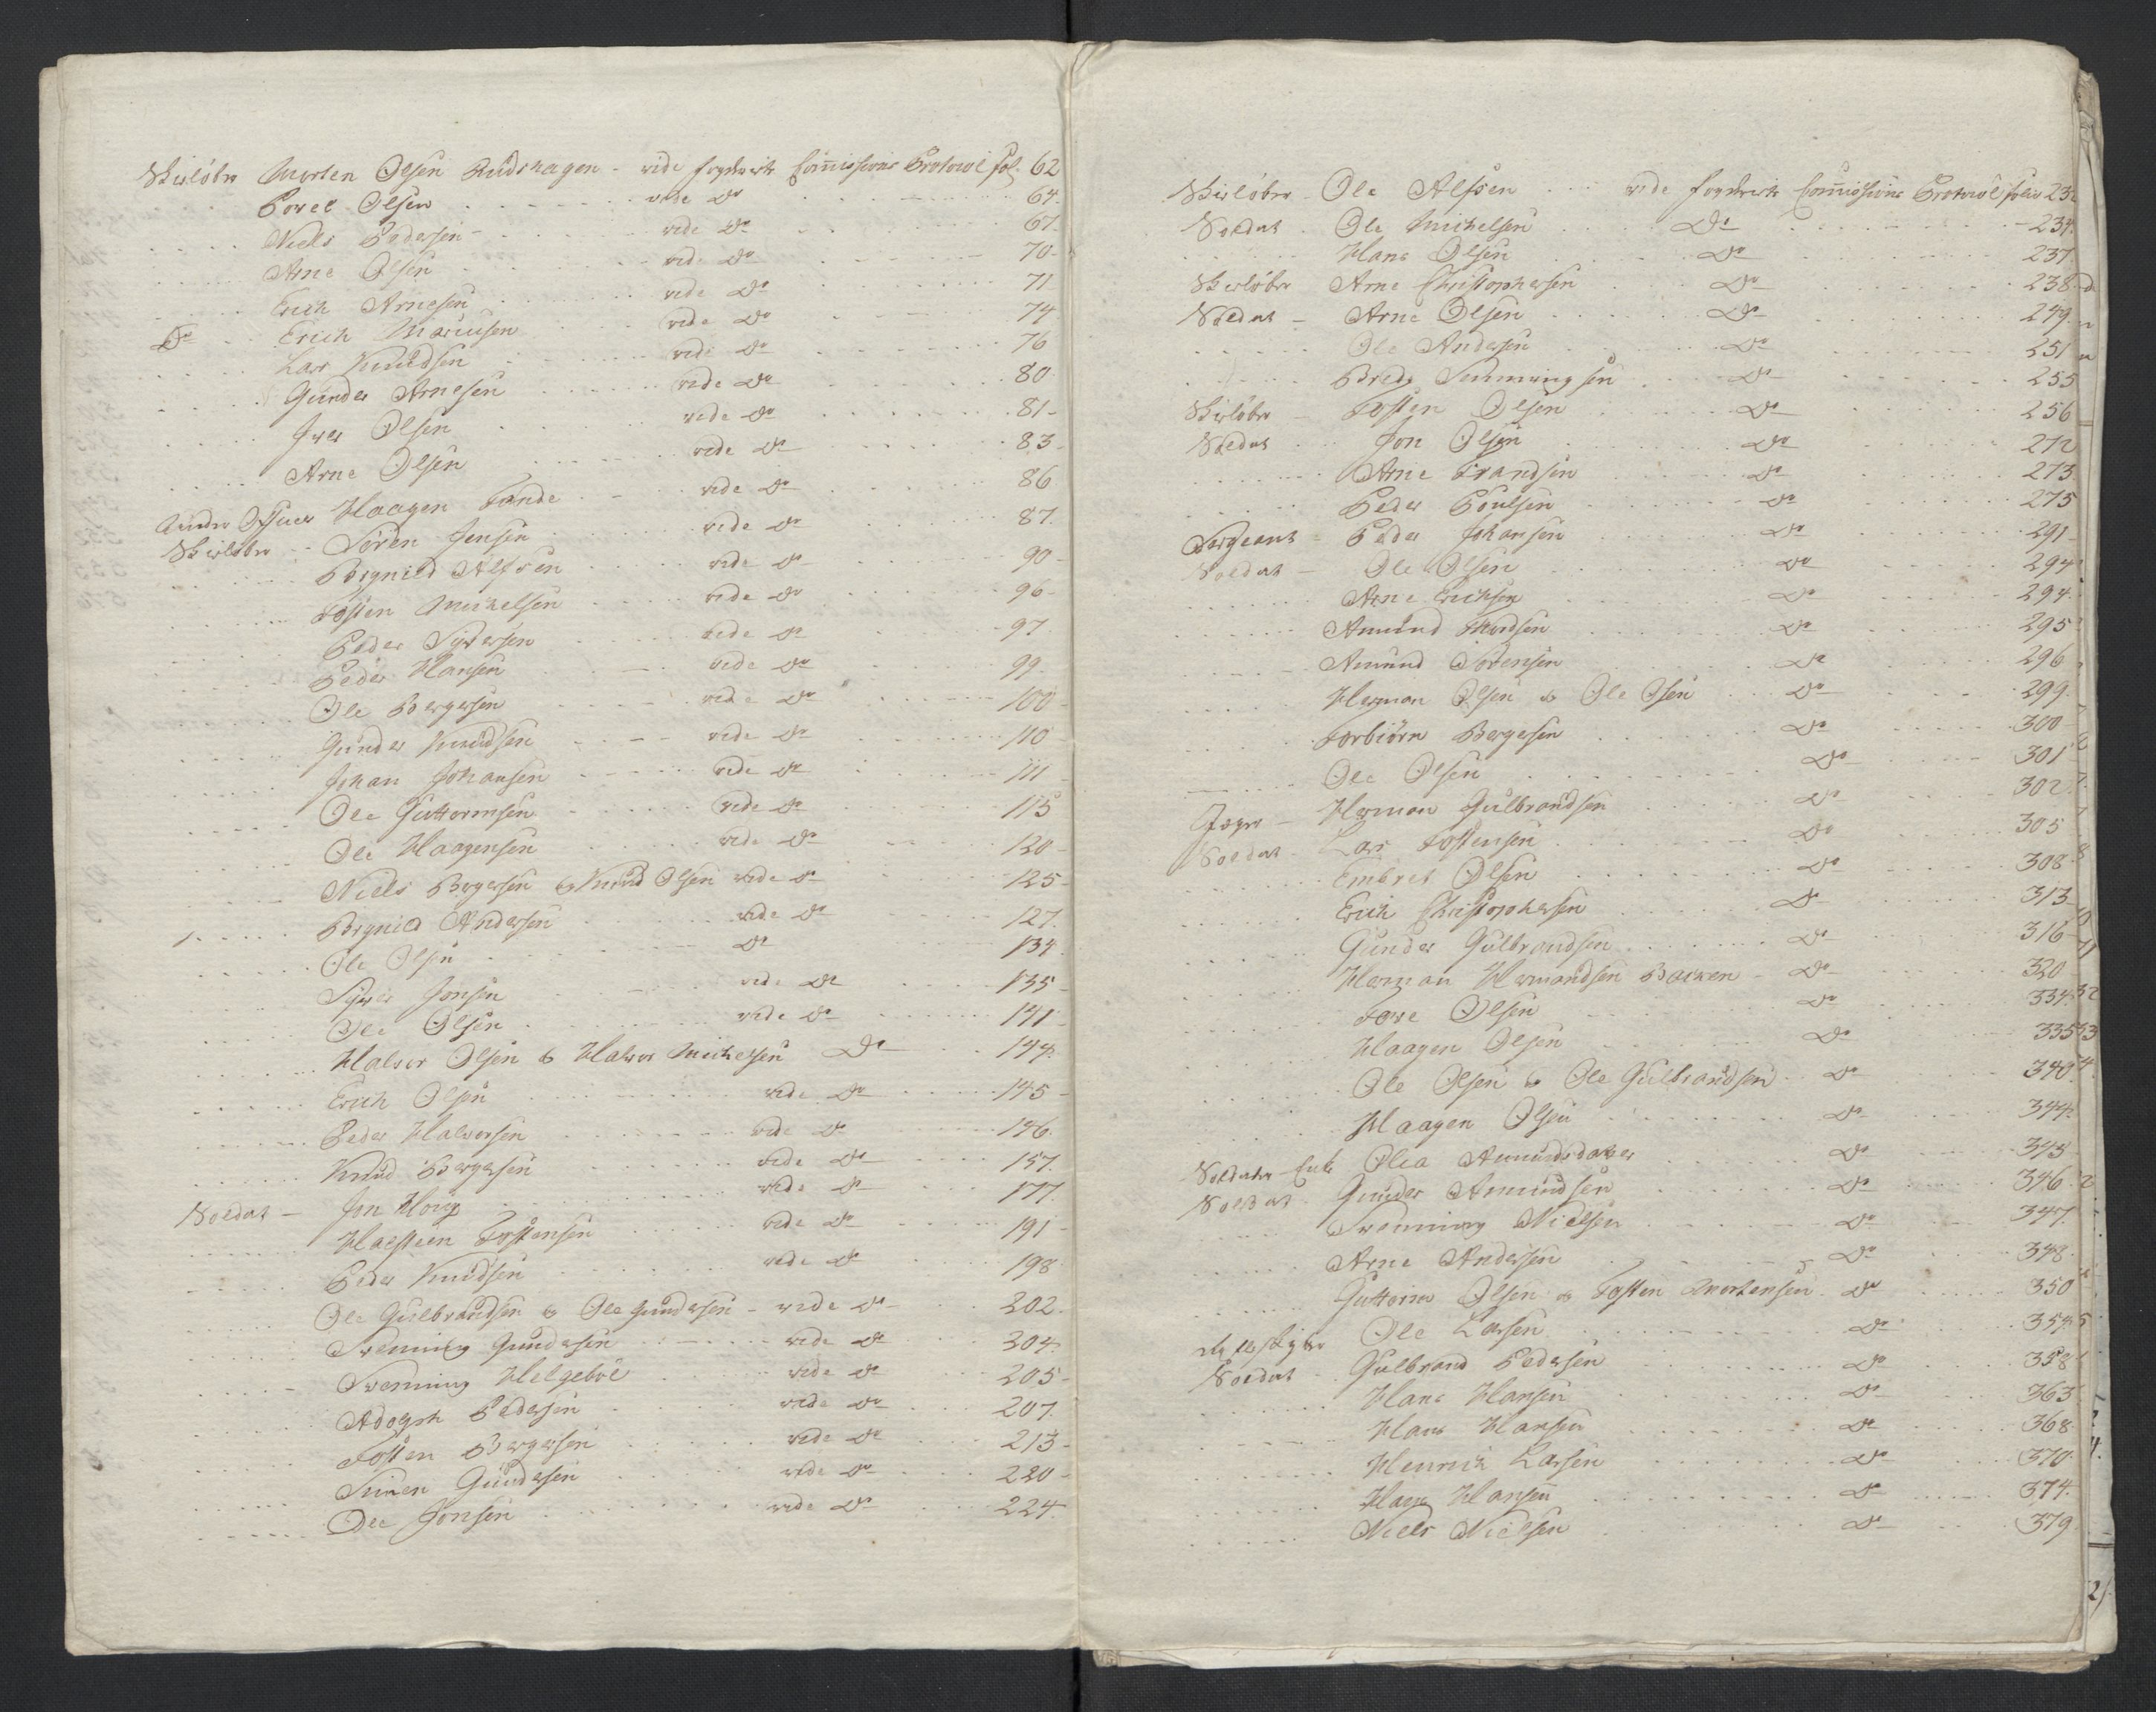 Skieløber Morten Olsen Rudshagen - vide Fogderiets Commissions Protocol fol. 62
Povel Olsen vide Do 64.
Niels Pedersen vide Do 67.
Arne Olsen vide Do 70.
Erich Arnesen vide Do 71
Do Erich Mariusen vide Do 74
Lars Knudsen vide Do 76
Gunder Arnesen vide Do 80
Iver Olsen vide Do 81-
Arne Olsen vide Do 83-
Under Officer Haagen Tande vide Do 86
Skieløber Søren Jensen vide Do 87.
Brynild Alfsen vide Do 90-
Tosten Michelsen vide Do 96-
Peder Syversen vide Do 97
Peder Hansen vide Do 99.
Ole Bergersen vide Do 100-
Gunder Knudsen vide Do 110
Johan Johansen vide Do 111-
Ole Guttormsen vide Do 115
Ole Haagensen vide Do 120-
Niels Bergersen & Knud Olsen vide Do 125-
Brynild Andersen vide Do 127.
Ole Olsen Do 134
Syver Jonsen vide Do 135-
Ole Olsen vide Do 141-
Halvor Olsen & Halvor Michelsen Do 144.
Erich Olsen vide Do 145-
Peder Halvorsen vide Do 146.
Knud Bergersen vide Do 157.
Soldat - Jon Houg vide Do 177.
Halstein Tostensen vide Do 191-
Peder Knudsen vide Do 198
Ole Gulbrandsen & Ole Gundersen - vide Do 202.
Svenning Gundersen vide Do 204.
Svenning Helgeböe vide Do 205-
Adolph Pedersen vide Do 207.
Tosten Bergersen vide Do 213-
Simen Gundersen vide Do 220-
Ole Jonsen vide Do 224.
Skieløber Ole Alfsen vide Fogderiets Commissions Protocol folio 232
Soldat Ole Michelsen Do 234.
Hans Olsen Do 237.
Skieløber Arne Christophersen Do 238.
Soldat - Arne Olsen Do 249.
Ole Andersen Do 251
Brede Semmingsen Do 255
Skieløber Tosten Olsen Do 256
Soldat Jon Olsen Do 272
Arne Frandsen Do 273.
Peder Poulsen Do 275
Sergeant Peder Johansen Do 291-
Soldat - Ole Olsen Do 294
Arne Erichsen Do 294.
Amund Thordsen Do 295
Amund Sørensen Do 296
Herman Olsen & Ole Olsen Do 299.
Torbiørn Bergersen Do 300-
Ole Olsen Do 301
Jæger - Herman Gulbrandsen Do 302.
Soldat Lars Tostensen Do 305
Embret Olsen Do 308
Erich Christophersen Do 313-
Gunder Gulbrandsen Do 316-
Herman Hermandsen Backen - Do 320
Tore Olsen Do 334.
Haagen Olsen Do 335
Ole Olsen & Ole Gulbrandsen Do 340.
Haagen Olsen Do 344.
Soldater Enke Olea Amundsdatter Do 345
Soldat Gunder Amundsen Do 346
Svenning Nielsen Do 347.
Arne Andersen Do 348
Guttorm Olsen & Tosten Mortensen Do 350
Ole Larsen Do 354.
Soldat Gulbrand Pedersen Do 358
Hans Hansen Do 363
Hans Hansen Do 368
Henrich Larsen Do 370.
Hans Hansen Do 374.
Niels Nielsen Do 379